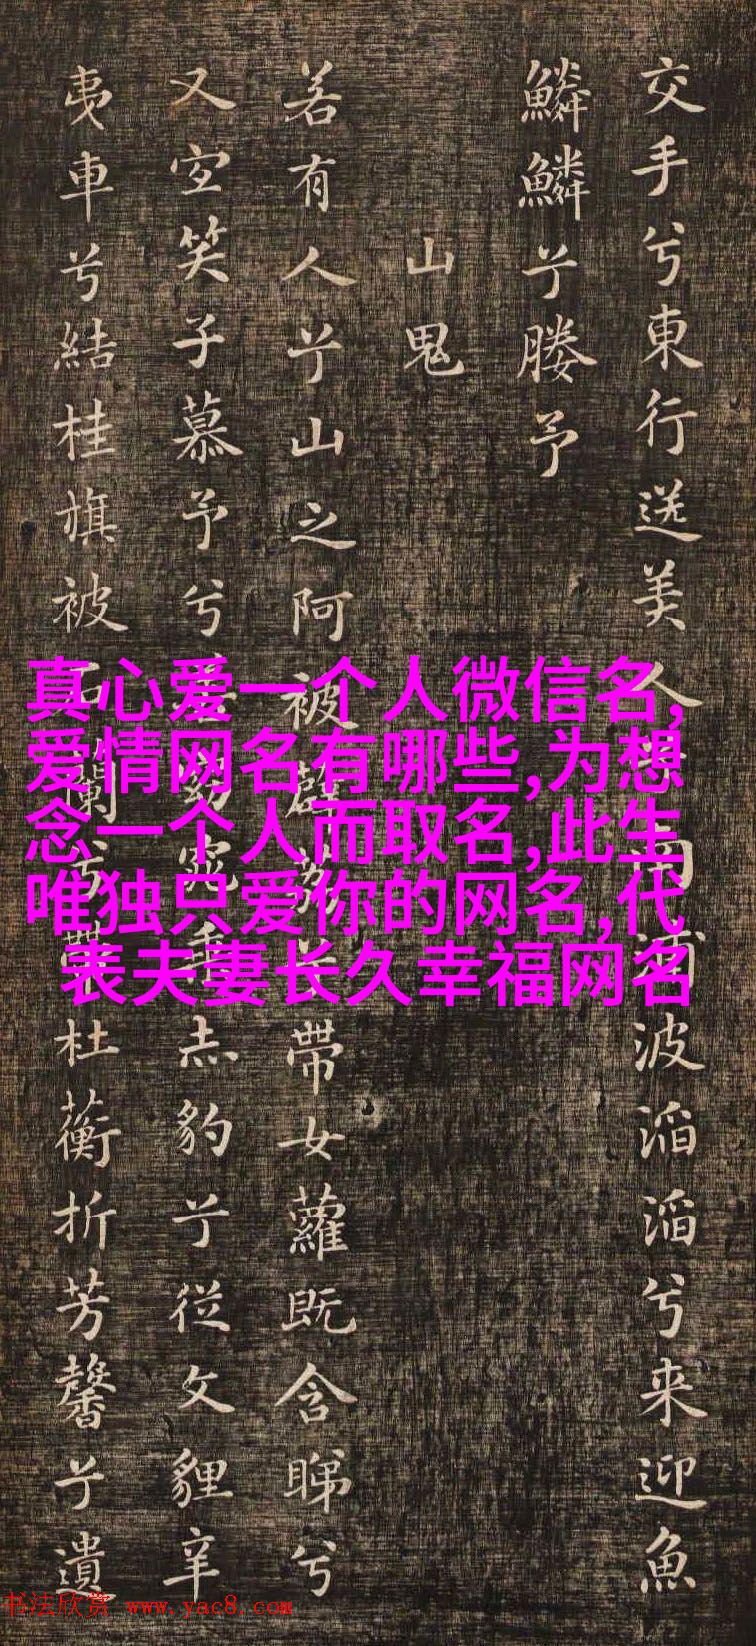 交手兮東行送美人南浦波滔滔兮来迎魚
鱗鱗兮媵予
山鬼
若有人兮山之阿被薜荔兮帶女蘿既含睇兮
又宜笑子慕予兮善窈窕乘赤豹兮從文貍辛
夷車兮結桂旗被石蘭兮帶杜蘅折芳馨兮遺
真心爱一个人微信名,
爱情网名有哪些,为想
念一个人而取名,此生
唯独只爱你的网名,代
表夫妻长久幸福网名
书法欣赏 www.yac8.com